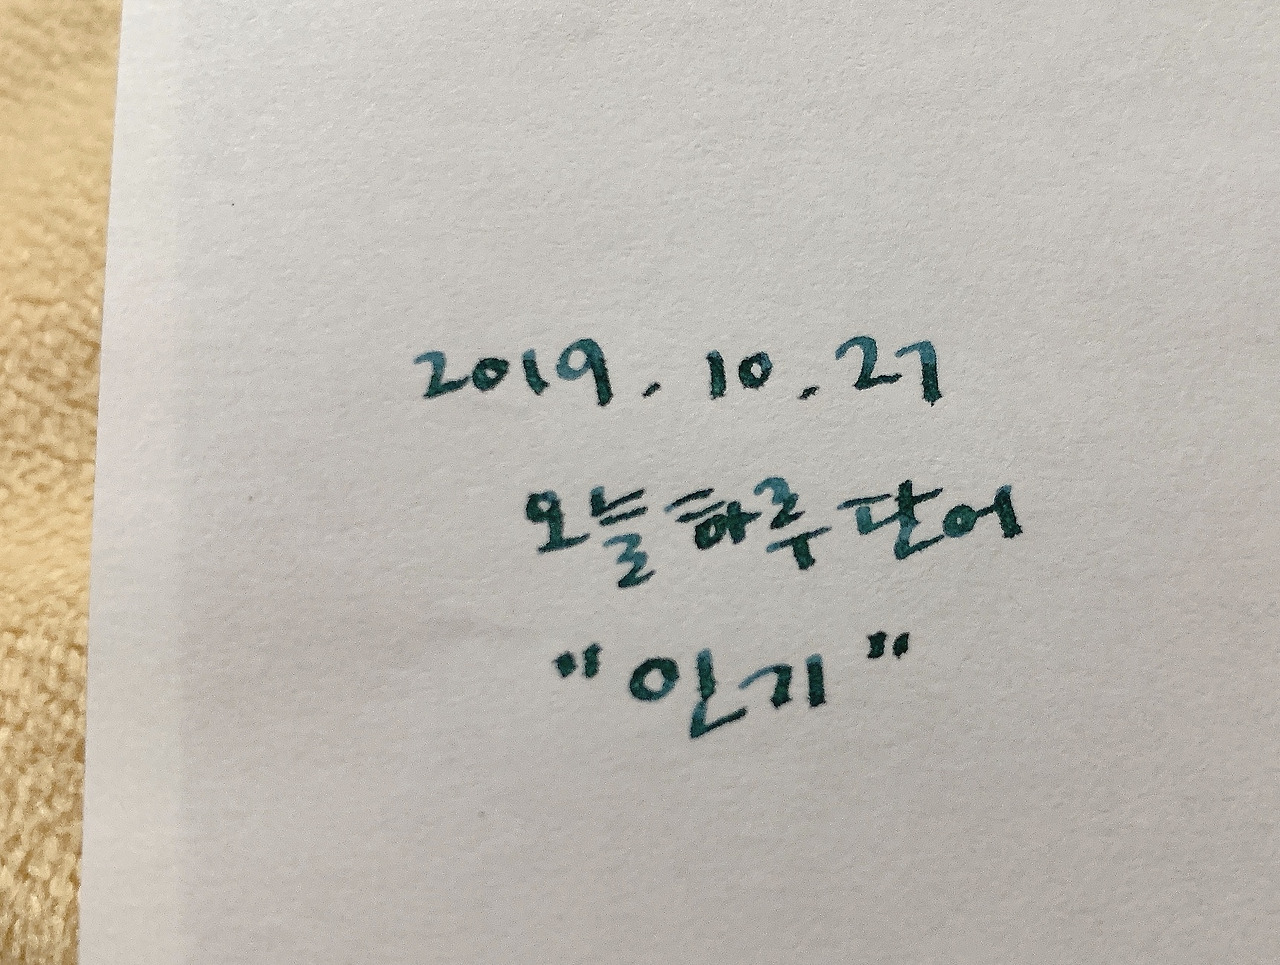 2019. 10. 27
오늘하루 단어
"인기"